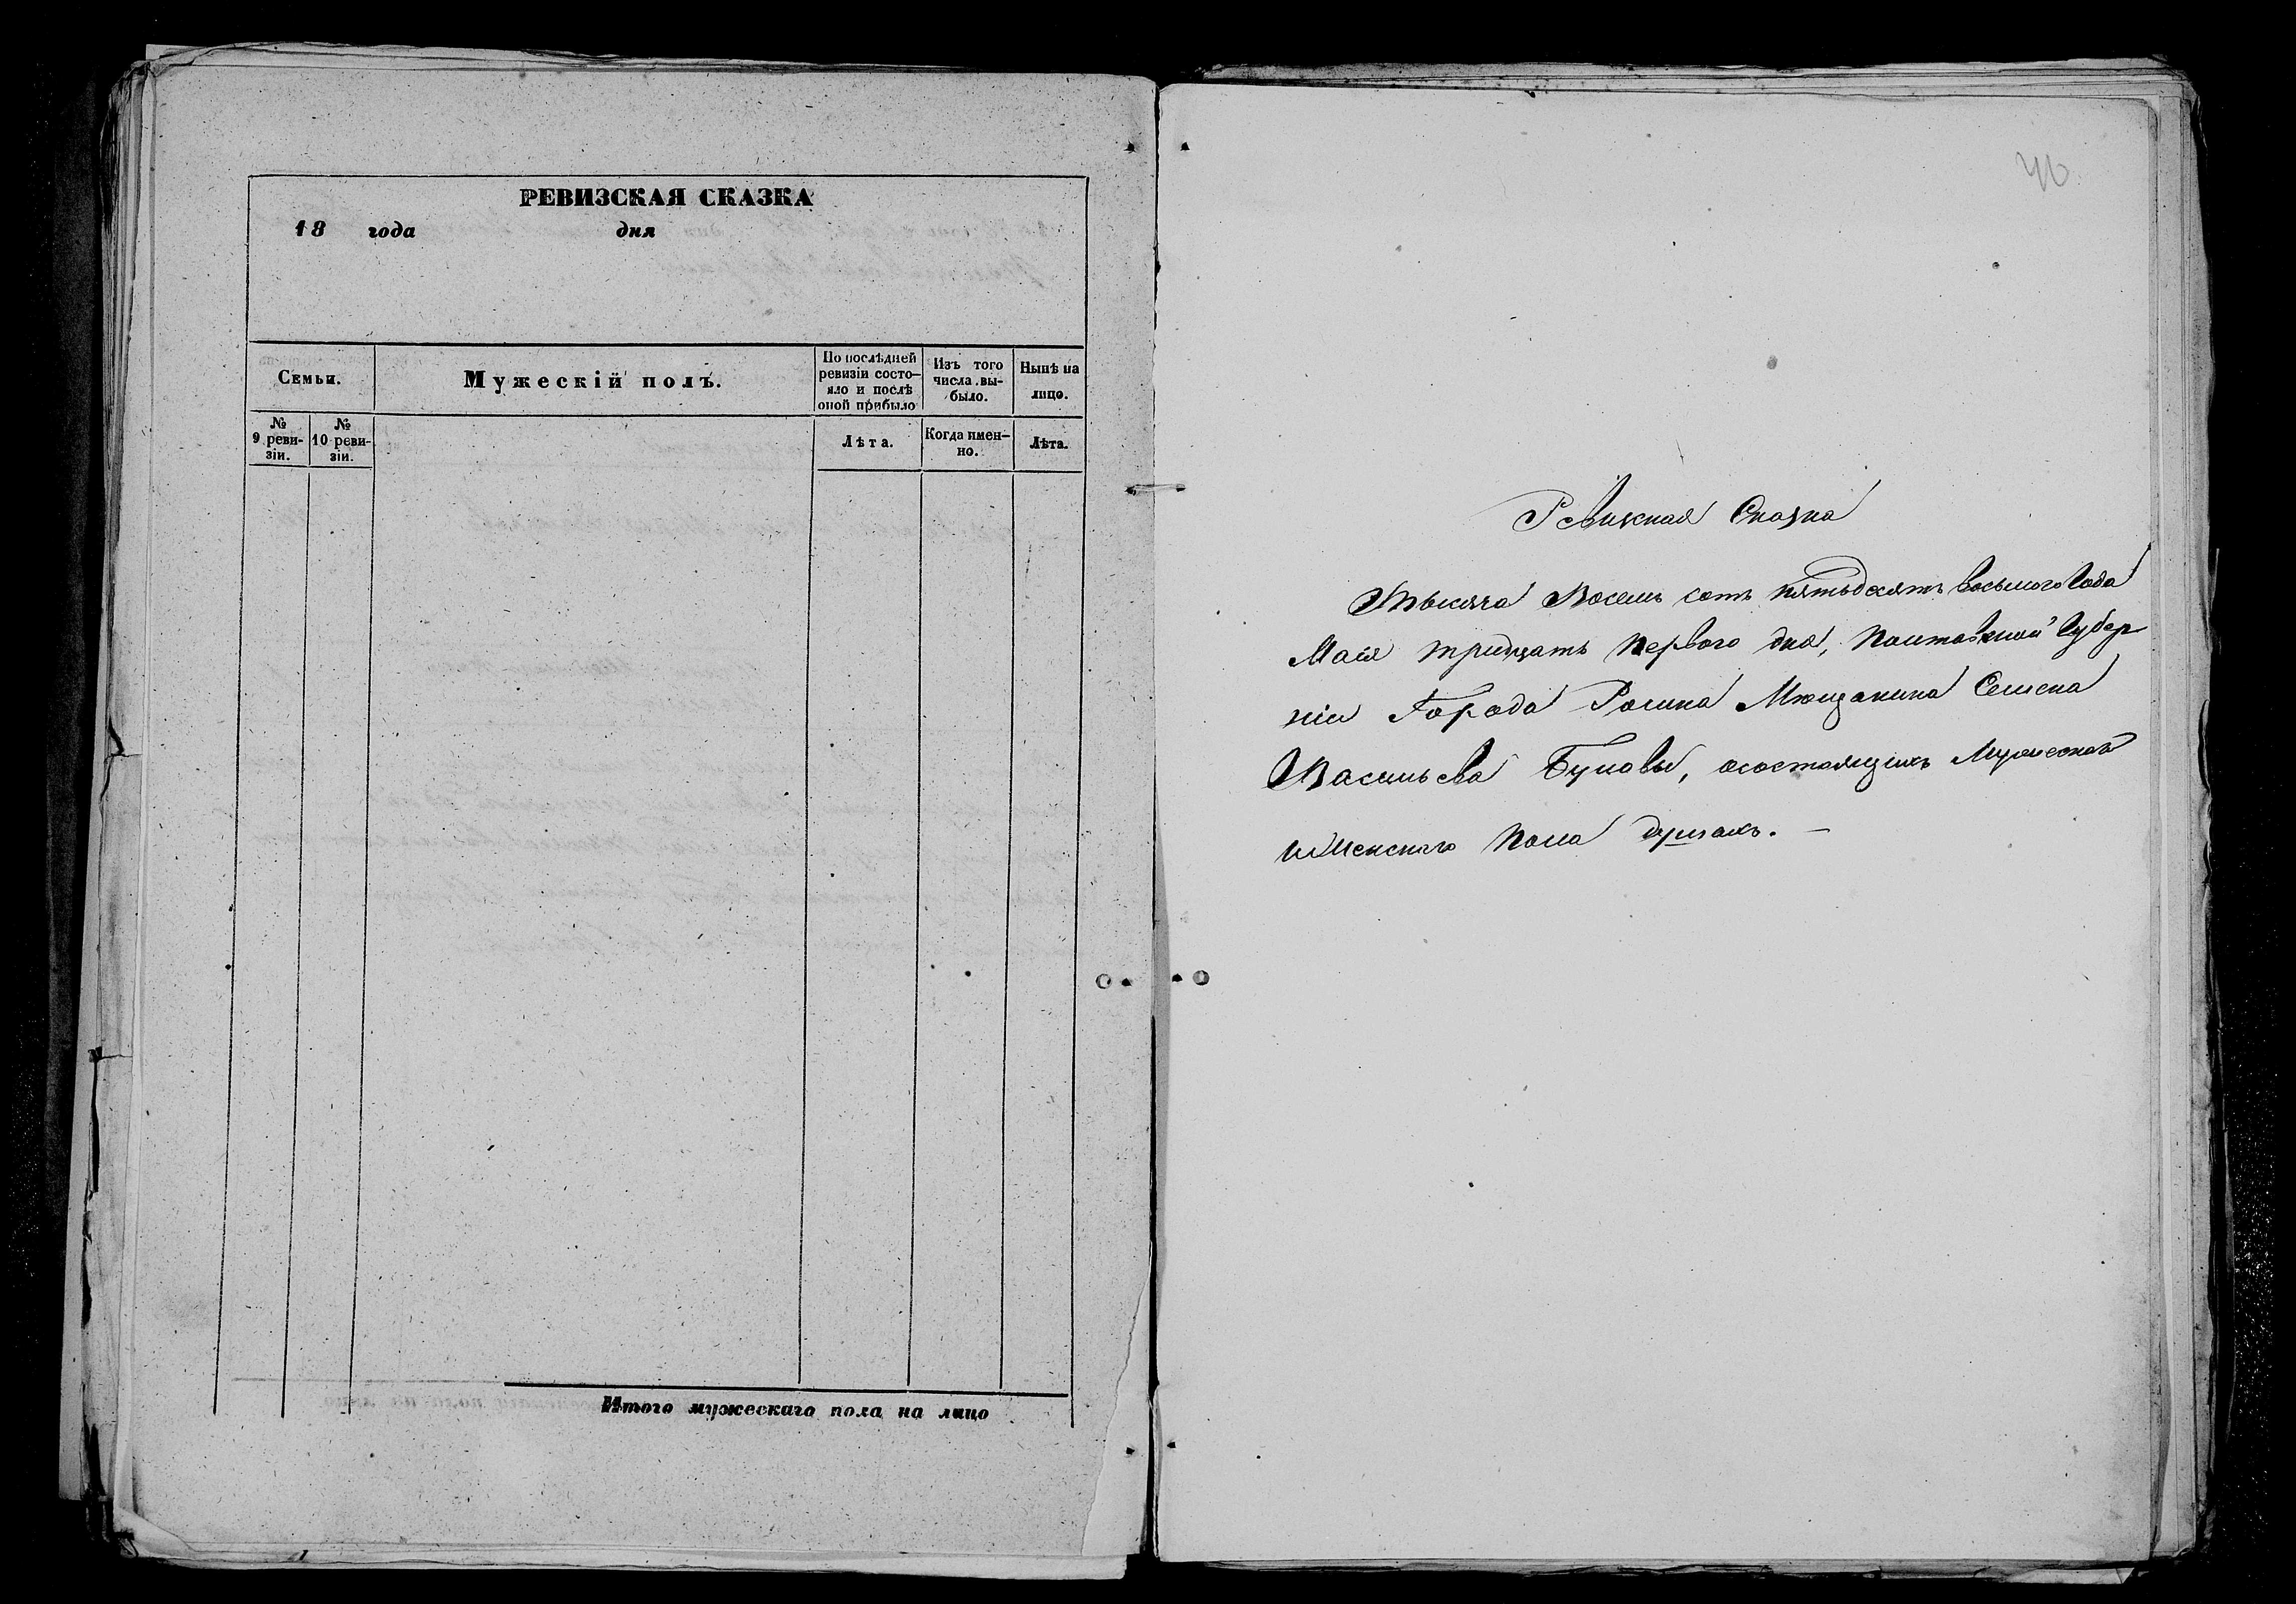 РЕВИЗСКАЯ СКАЗКА
18 года дня
Семьи.
Мужескій полъ.
По послѣдней
ревизіи состо-
яло и послѣ
оной прибыло
Изъ того
числа вы-
было.
Нынѣ на
лицо.
№
9 реви-
зіи.
№
10 реви-
зіи.
Лѣта.
Когда имен-
но.
Лѣта.
Итого мужескаго пола на лицо
46
Ревизская Сказка
Тысяча Восемь сотъ пятьдесятъ восьмого Года
Маія тридцать Первого дня, Полтавской Губер
ніи Города Ромна Мещанина Семена
Васильева Буковы, осостоящихъ Мужеска
и Женского Пола душахъ. —